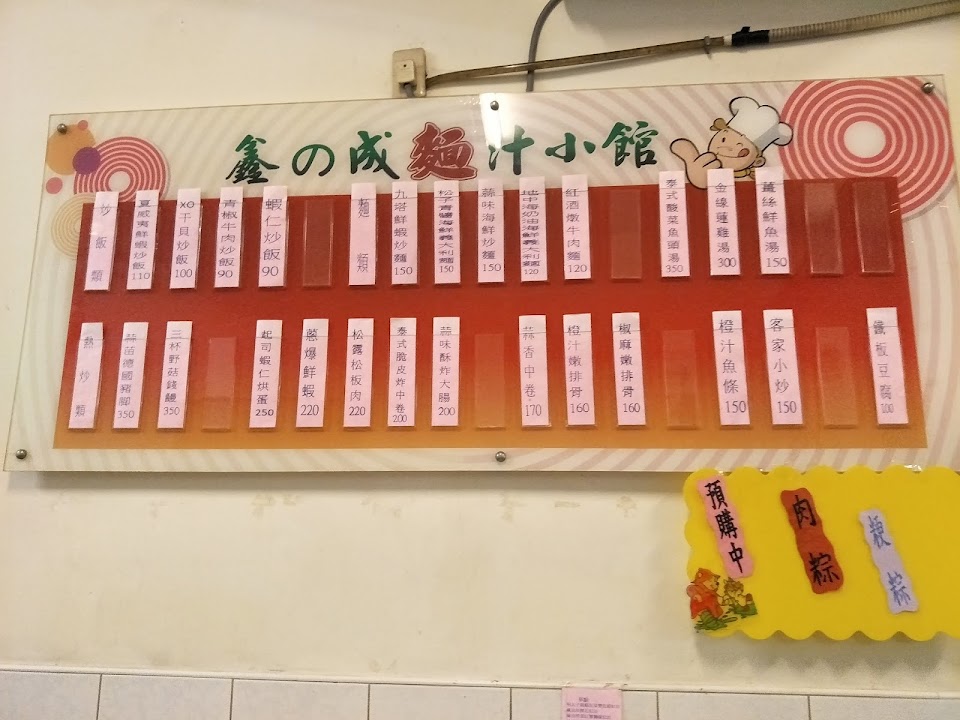 鑫の成麵汁小館
炒飯類
夏威夷鮮蝦炒飯110
XO干貝炒飯100
青椒牛肉炒飯90
蝦仁炒飯90
麵類
九塔鮮蝦炒麵150
松子青醬海鮮義大利麵150
蒜味海鮮炒麵150
地中海奶油海鮮義大利麵120
紅酒燉牛肉麵120
泰式酸菜魚頭湯350
金線蓮雞湯300
薑絲鮮魚湯150
熱炒類
蒜苗德國豬腳350
三杯野菇
350
起司蝦仁烘蛋250
蔥爆鮮蝦220
松露松板肉220
泰式脆皮炸中卷200
蒜味酥炸大腸200
蒜香中卷170
橙汁嫩排骨160
椒麻嫩排骨160
橙汁魚條150
客家小炒150
鐵板豆腐100
預購中
肉粽
粳粽